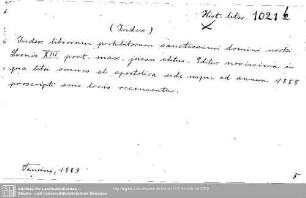 Hist. liter. 1021 b
(Index)
Index librorum prohibitorum sanctissimi domini nostri
Leonis XIII pont. max. jussu editus. Editio novissima in
qua libri omnes ab apostolica sede usque ad annum 1888
proscripti suis locis recensentur.
Taurini, 1889